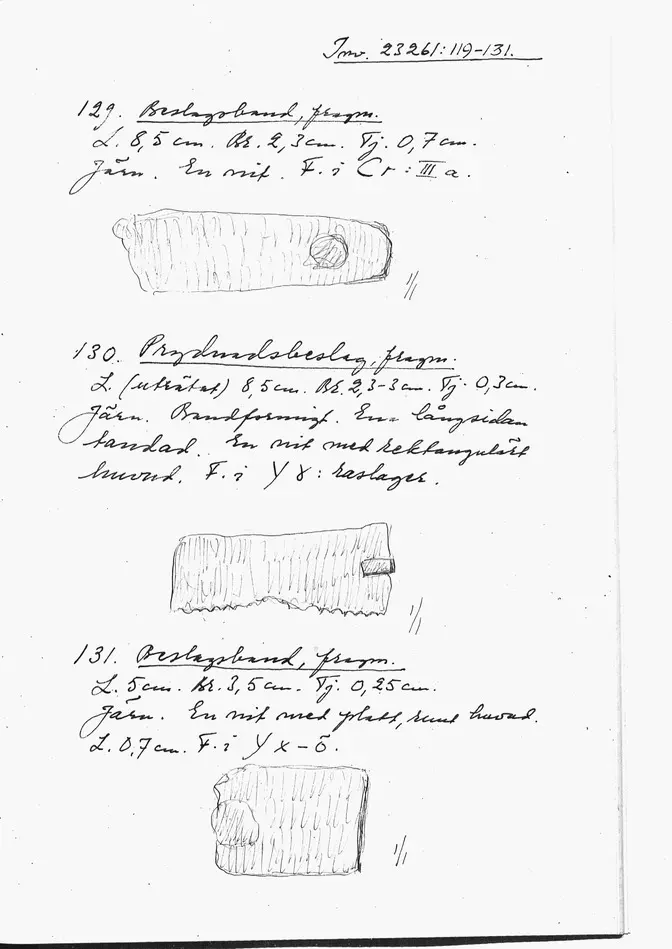 Inv. 23261:119-131.
129. Beslagsband, fragm.
L. 8,5 cm. Br. 2,3 cm. Tj. 0,7 cm.
Järn. En nit. F. i Cr: III a.
1/1
130. Prydnadsbeslag, fragm.
L. (uträtat) 8,5 cm. Br. 2,3-3 cm. Tj. 0,3 cm.
Järn. Bandformigt. Ena långsidan
tandad. En nit med rektangulärt
huvud. F. i Y 8: raslager.
1/1
131. Beslagsband, fragm.
L. 5 cm. Br. 3,5 cm. Tj. 0,25 cm.
Järn. En nit med platt, runt huvud.
L. 0,7 cm. F. i Y x-ö.
1/1